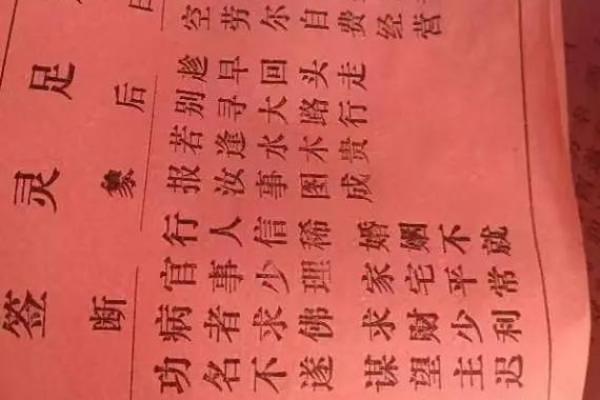 足灵签
后象
断
空劳尔自费经营
趁早回头走
别寻大路行
若逢水木贵
报汝事图成
行人信稀 婚姻不就
官事少理 家宅平常
病者求佛 求财少利
功名不遂 谋望主迟